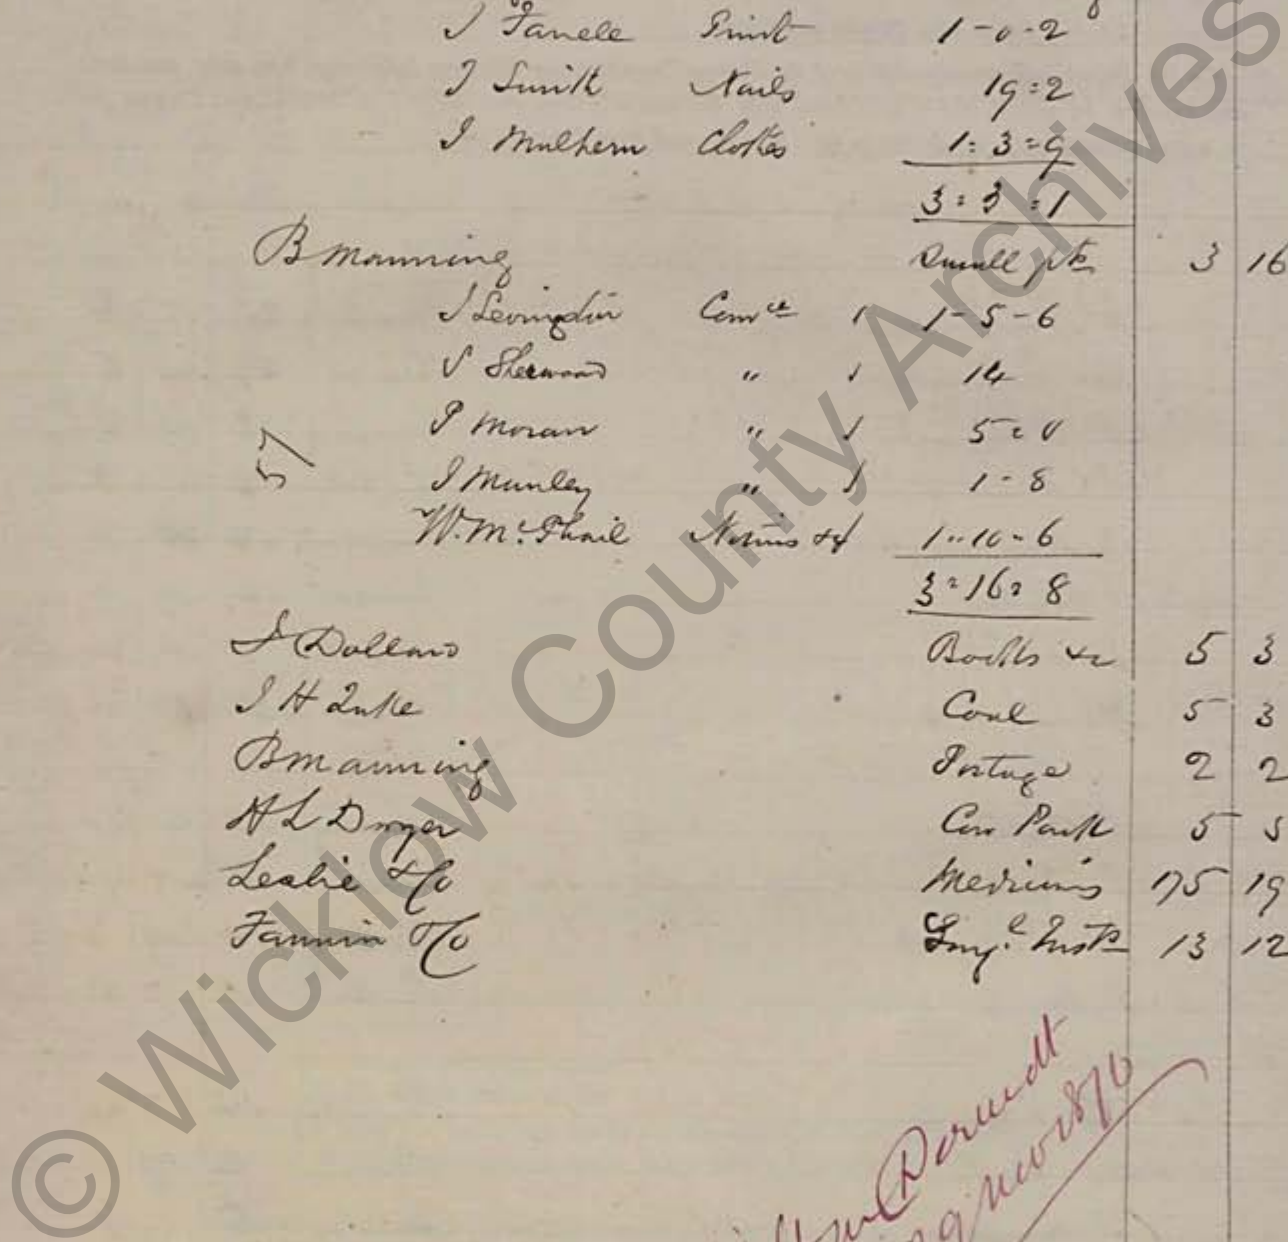 J Farrell Paint 1-0-2
J Smith Nails 19=2
J Mulhern Clothes 1=3=9
3=3=1
B Manning Small pts 3 16
J Levingston 1 1-5-6
S Sherwood " 1 14
P Moran " 1 5=0
J Munley " 1 1-8
57
W. McPhail 1"10"6
3=16=8
J Dollard Books &c 5 3
J H Luke Coal 5 3
B Manning Postage 2 2
H L Dwyer Cow Park 5 5
Leslie & Co Medicines 175 19
Fannin & Co Surgl Insts 13 12
Dermott
29 Nov 1876
© Wicklow County Archives